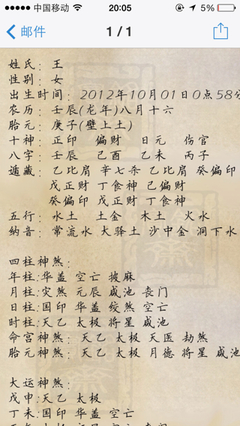 中国移动 20:05 5%
邮件 1/1
姓氏: 王
性别: 女
出生时间: 2012年10月01日0点58分
农历: 壬辰(龙年)八月十六
胎元: 庚子(壁上土)
十神: 正印 偏财 日元 伤官
八字: 壬辰 己酉 乙未 丙子
遁藏: 乙比肩 辛七杀 乙比肩 癸偏印
戊正财 丁食神 己偏财
癸偏印 戊正财 丁食神
五行: 水土 土金 木土 火水
纳音: 常流水 大驿土 沙中金 洞下水
四柱神煞:
年柱:华盖 空亡 披麻
月柱:灾煞 元辰 咸池 丧门
日柱:国印 华盖 绞煞 空亡
时柱:天乙 太极 将星 咸池
命宫神煞: 天乙 太极 天医 劫煞
胎元神煞: 天乙 太极 月德 将星
大运神煞:
戊申:天乙 太极
丁未:国印 华盖 空亡